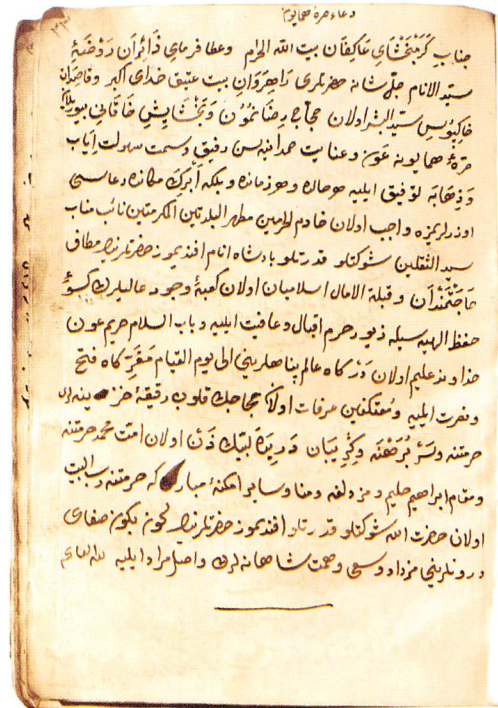 دعاء صره همایون
جناب كرمبخشاى عاكفان بيت الله الحرام وعطا فرماى زائران روضهٔ
سيد الانام جل شانه حضرتلرى راهروان بيت عتيق خداى اكبر وقاصدان
خاكبوس سيد البشر اولان حجاج رضانمون وبخشايش خاقانى
صرهٔ همايونه عون وعنايت صمدانيه سن رفيق وسمت سهولت اياب
وذهابه توفيق ايليه هر حالده وهر زمانده وبلكه ابرك مكانده دعاسى
اوزرلريمزه واجب اولان خادم الحرمين مطهر البلدتين المكرمتين نائب مناب
سيد الثقلين شوكتلو قدرتلو پادشاه انام افنديمز حضرتلرينك مطاف
حاجتمندان وقبلة الامال اسلاميان اولان كعبهٔ وجود عاليلرن كسوهٔ
حفظ الهيه سيله زيور حرم اقبال وعافيت ايليه وباب السلام حريم عون
خداوند عليم اولان درگاه عالم پناهلرينى الى يوم القيام مقرگاه فتح
ونصرت ايليه ومعتكفين عرفات اولان حجاجك قلوب رقيقهٔ
حرمتنه وسر برهنه وگريبان دريده لبيك زن اولان امت محمد حرمتنه
ومقام ابراهيم حليم ومزدلفه ومنا وساير امكنهٔ مباركه حرمتنه رب البيت
اولان حضرت الله شوكتلو قدرتلو افنديمز حضرتلرينك كون بكون صفاى
درونلرينى مزداد وسعى وهمت شاهانه لرين واصل مراد ايليه